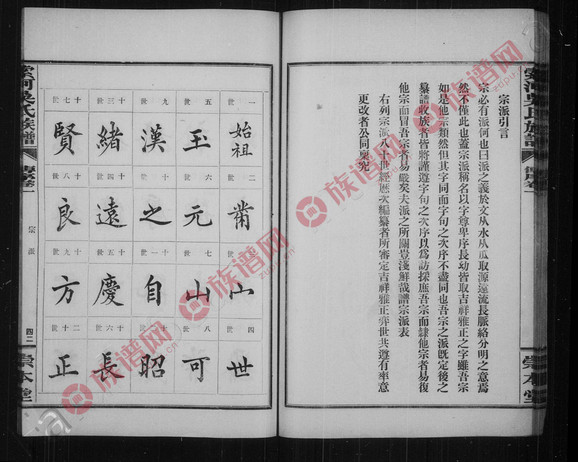 宗派引言
宗必有派何也曰派之義於文从水从𠂢取源遠流長脈絡分明之意焉
然不僅此也蓋宗派稱名以字尊卑序長幼皆取吉祥雅正之字雖吾宗
如是他宗類然但其字同面字句之次序不盡同也吾宗之派既定後之
纂譜收族者皆將謹遵字句之次序以為訪採庶吾宗而隸他宗者易復
他宗而冒吾宗者易嚴矣夫派之所關豈淺鮮哉譜宗派表
右列宗派八十世經歷次編纂者所審定吉祥雅正弈世共遵有率意
更改者公同稟究
一世 始祖
二世
三世 山
四世 世
五世 玉
六世 元
七世 山
八世 可
九世 漢
十世 之
十一世 自
十二世 昭
十三世 緒
十四世 遠
十五世 慶
十六世 長
十七世 賢
十八世 良
十九世 方
二十世 正
吳氏族譜
卷一
宗派
四二
崇本堂
族谱网